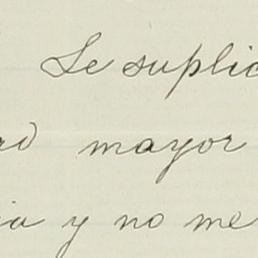 Se suplic
mayor
y no me